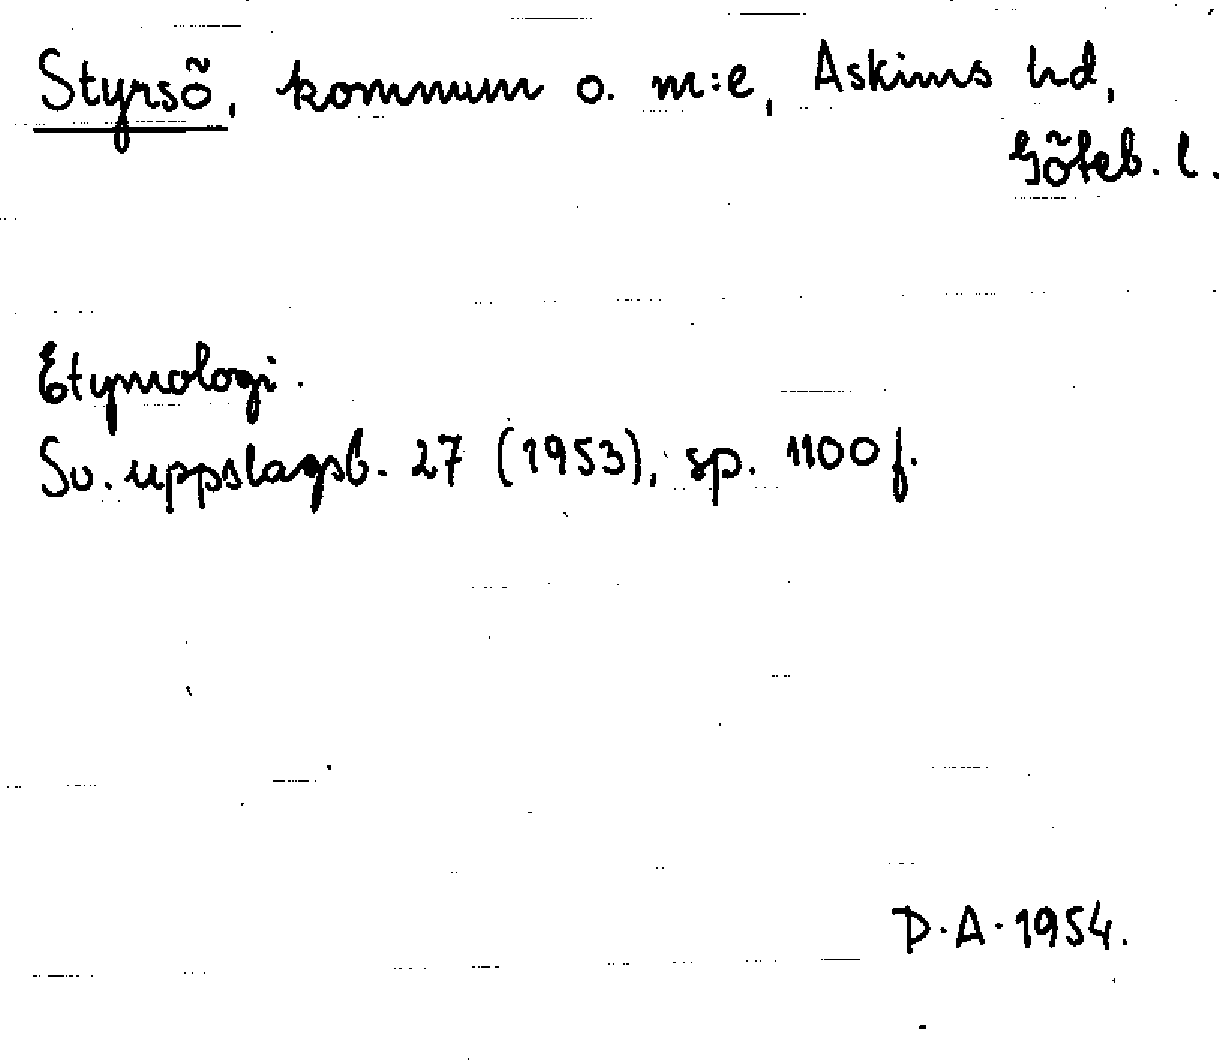 Styrsö, kommun o. m:e, Askims hd,
Göteb. l.
Etymologi.
Sv. uppslagsb. 27 (1953), sp. 1100 f.
D.A. 1954.